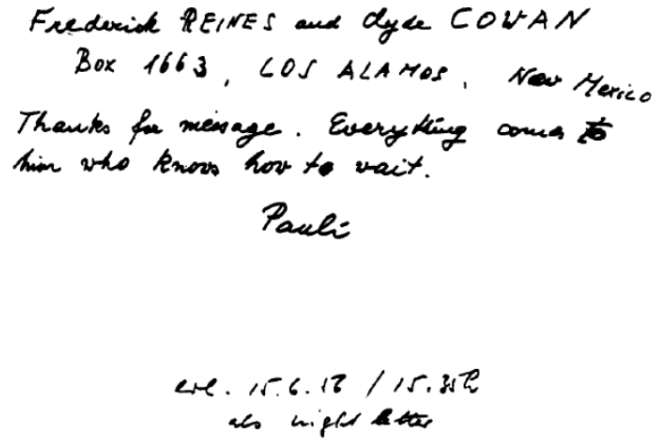 Frederick REINES and Clyde COWAN
Box 1663, LOS ALAMOS, New Mexico
Thanks for message. Everything comes to
him who knows how to vait.
Pauli
erl. 15.6.56 / 15.35h
als night letter